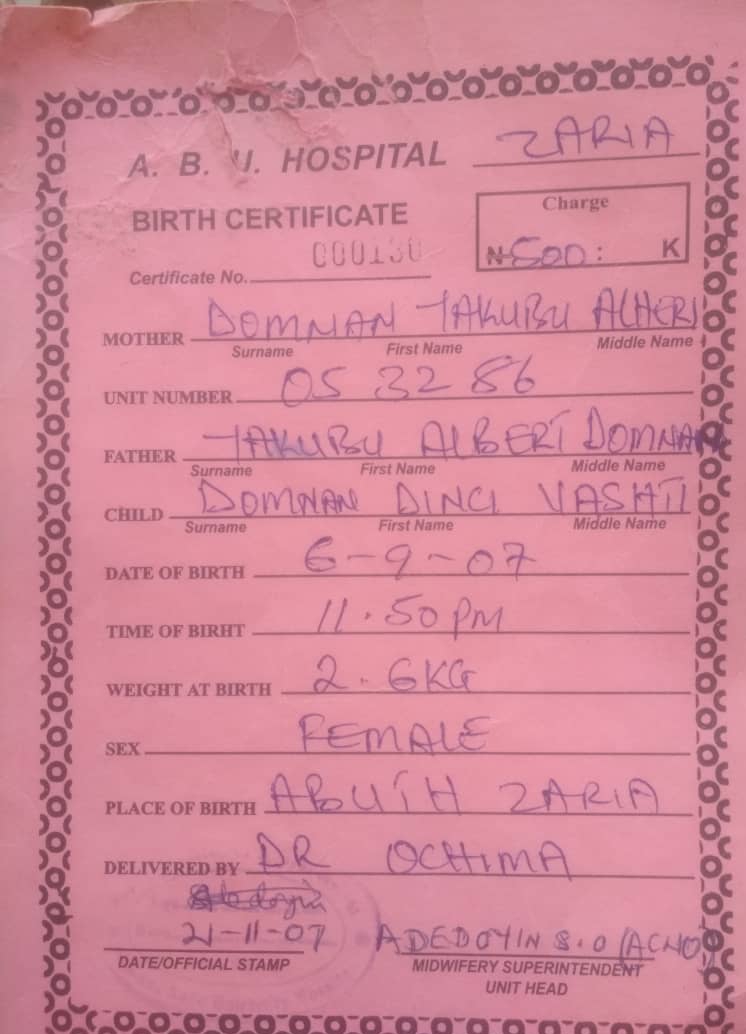 A. B. U. HOSPITAL ZARIA
BIRTH CERTIFICATE
Charge
₦ 500: K
Certificate No. 000130
MOTHER DOMNAN YAKUBU ALHERI
Surname First Name Middle Name
UNIT NUMBER 05 32 86
FATHER YAKUBU ALBERT DOMNAN
Surname First Name Middle Name
CHILD DOMNAN DINCI VASHTI
Surname First Name Middle Name
DATE OF BIRTH 6-9-07
TIME OF BIRHT 11.50 PM
WEIGHT AT BIRTH 2.6KG
SEX FEMALE
PLACE OF BIRTH ABUTH ZARIA
DELIVERED BY DR OCHIMA
21-11-07 ADEDOYIN S.O (ACNO)
DATE/OFFICIAL STAMP MIDWIFERY SUPERINTENDENT
UNIT HEAD